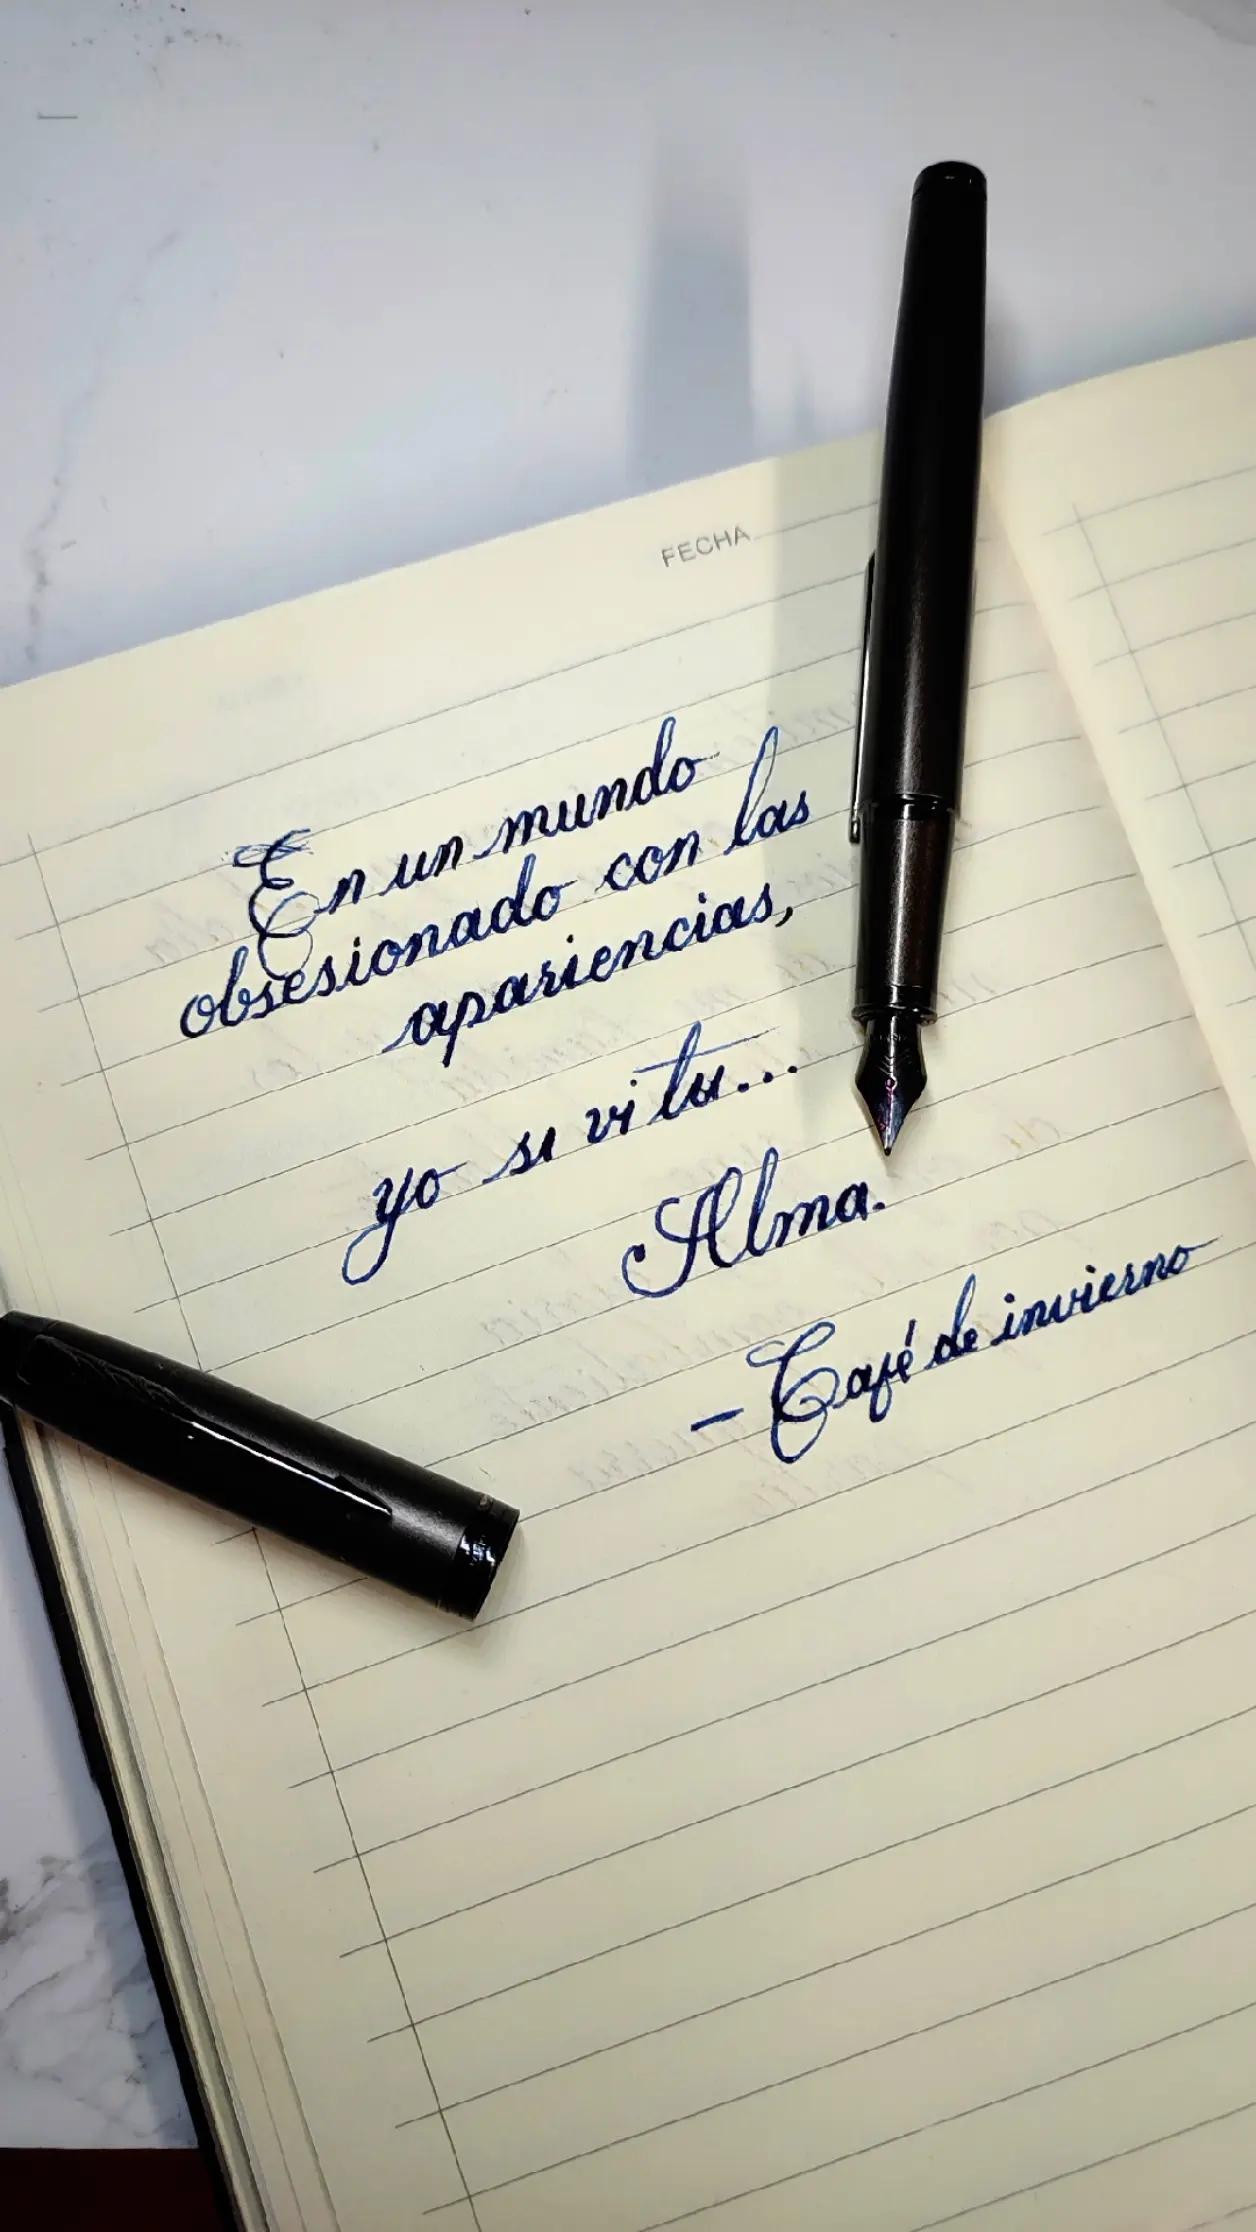 FECHA
En un mundo
obsesionado con las
apariencias,
yo si vi tu...
Alma.
- Café de invierno